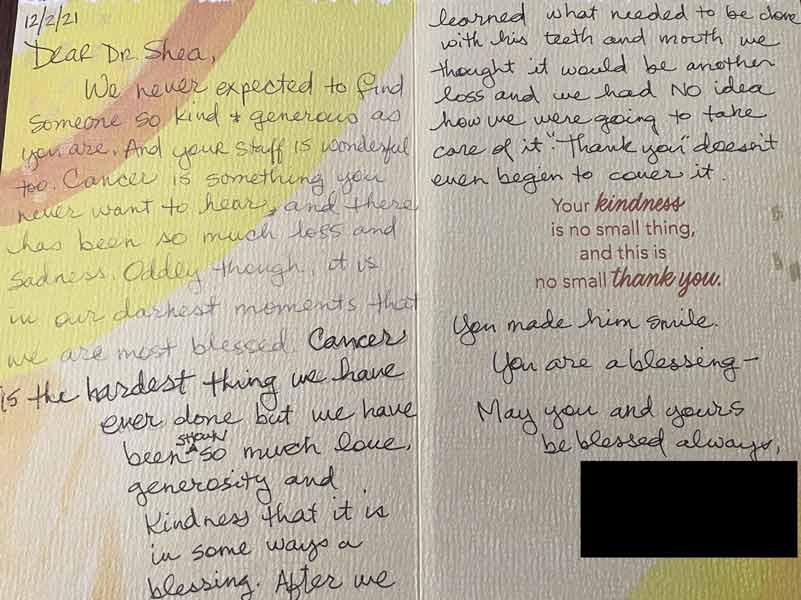 12/2/21
Dear Dr. Shea,
We never expected to find
someone so kind & generous as
you are. And your staff is wonderful
too. Cancer is something you
never want to hear, and there
has been so much loss and
sadness. Oddly though, it is
in our darkest moments that
we are most blessed. Cancer
is the hardest thing we have
ever done but we have
been shown so much love,
generosity and
kindness that it is
in some ways a
blessing. After we
learned what needed to be done
with his teeth and mouth we
thought it would be another
loss and we had NO idea
how we were going to take
care of it. "Thank you" doesn't
even begin to cover it.
Your kindness
is no small thing,
and this is
no small thank you.
You made him smile.
You are a blessing -
May you and yours
be blessed always,